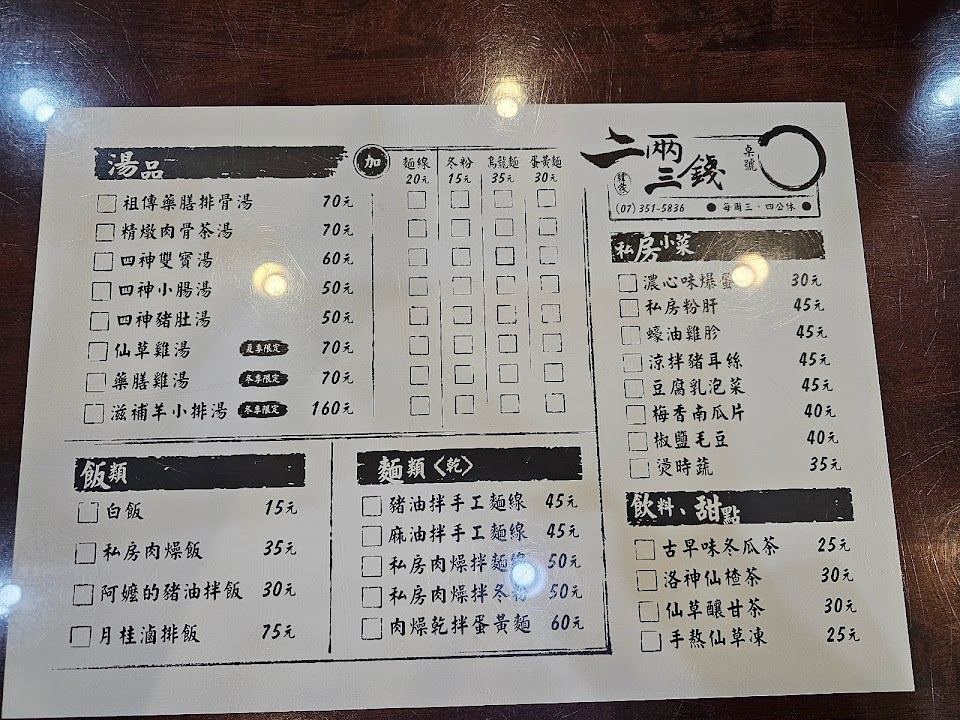 湯品
加 麵線 冬粉 烏龍麵 蛋黃麵
20元 15元 35元 30元
祖傳藥膳排骨湯 70元
精燉肉骨茶湯 70元
四神雙寶湯 60元
四神小腸湯 50元
四神豬肚湯 50元
仙草雞湯 夏季限定 70元
藥膳雞湯 冬季限定 70元
滋補羊小排湯 冬季限定 160元
飯類
白飯 15元
私房肉燥飯 35元
阿嬤的豬油拌飯 30元
月桂滷排飯 75元
麵類〈乾〉
豬油拌手工麵線 45元
麻油拌手工麵線 45元
私房肉燥拌麵線 50元
私房肉燥拌冬粉 50元
肉燥乾拌蛋黃麵 60元
二兩三錢
桌號
(07) 351-5836 ● 每周三·四公休 ●
私房小菜
濃心味爆蛋 30元
私房粉肝 45元
蠔油雞胗 45元
涼拌豬耳絲 45元
豆腐乳泡菜 45元
梅香南瓜片 40元
椒鹽毛豆 40元
燙時蔬 35元
飲料、甜點
古早味冬瓜茶 25元
洛神仙楂茶 30元
仙草釀甘茶 30元
手熬仙草凍 25元